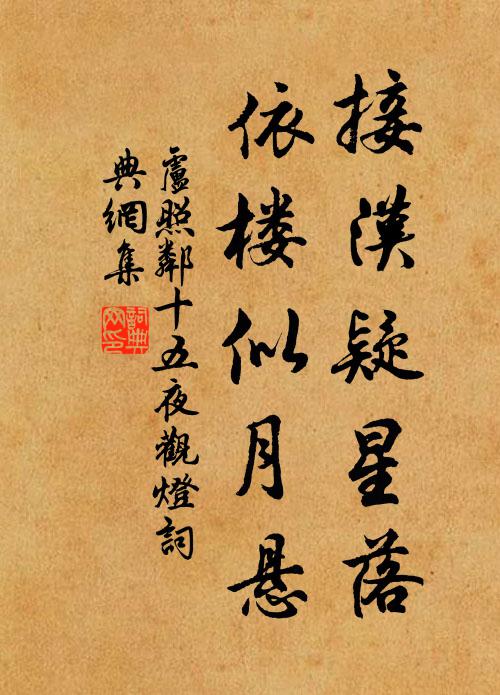 接漢疑星落
依楼似月悬
盧照鄰十五夜觀燈詞
典網集
詞典
网印